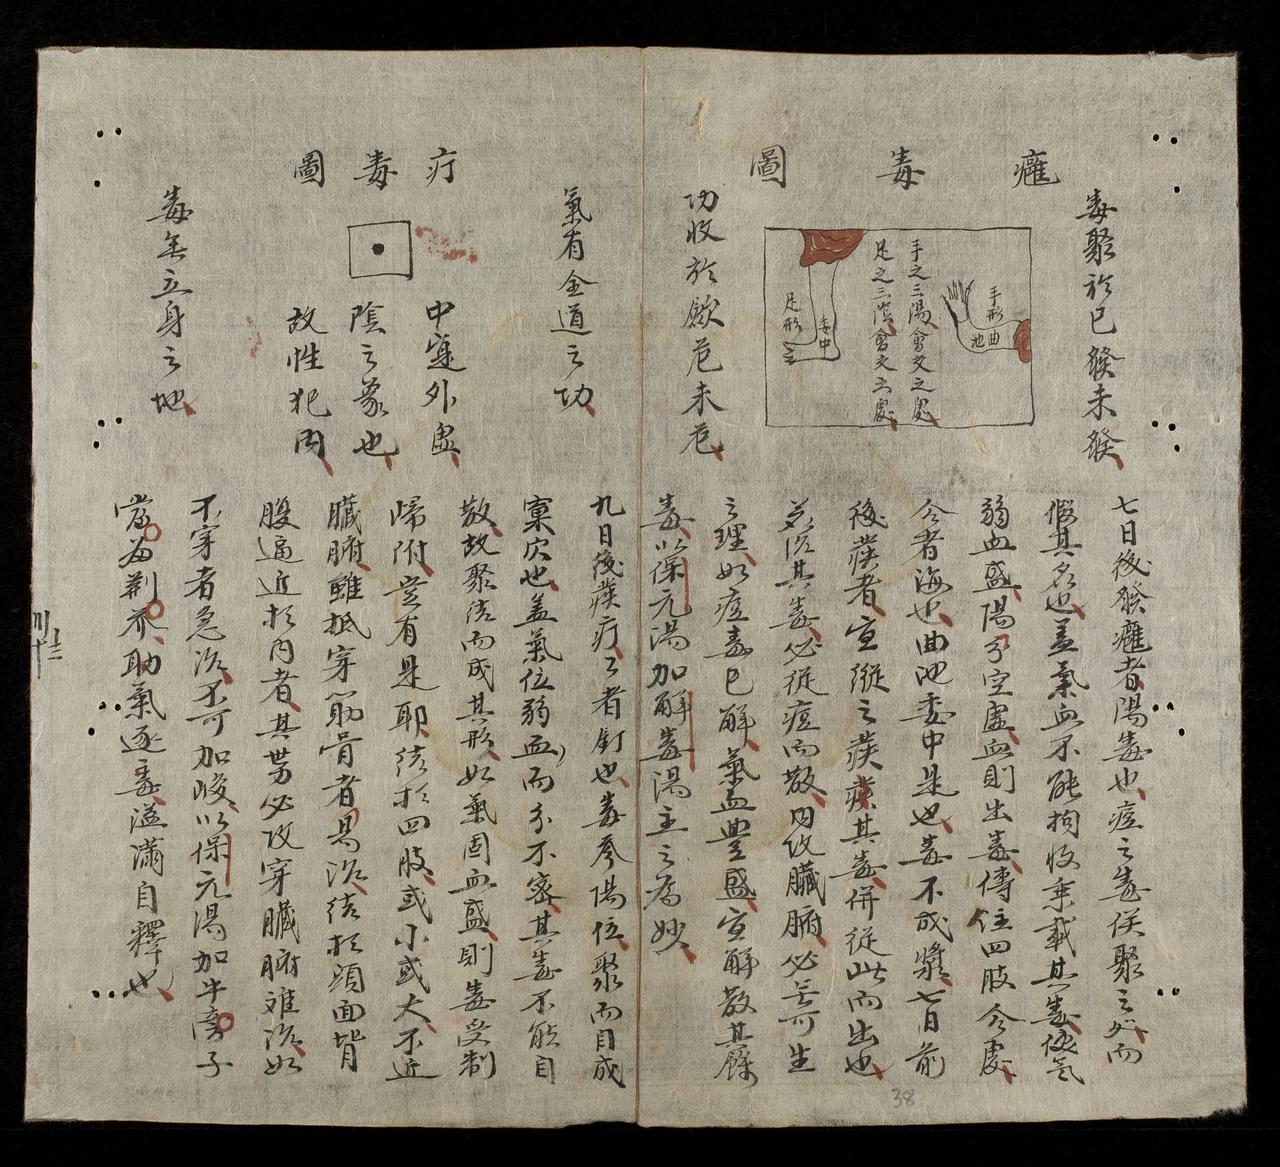 癰毒圖
毒聚於已發未發
手形
曲池
手之三陽會交之處
足之三陰會交之處
委中
足形
功收於厥危未危
七日後發癰者陽毒也痘之毒俟聚之如而
假其名也蓋氣血不能拘收乘載其毒使氣
弱血盛陽分空虛血則出毒傳住四肢合處
合者海也曲池委中是也毒不成漿七日前
後癀者宣縱之癀癀其毒併從此而出也
若治其毒必從痘而散內攻臟腑必無可生
之理如痘毒已解氣血豐盛宣解散其餘
毒以保元湯加解毒湯主之為妙
疔毒圖
氣有全道之功
中寔外虛
陰之象也
故性犯內
毒無立身之地
九日後癀疔疔者釘也毒參陽位聚而自成
窠穴也蓋氣位弱血而分不密其毒不能自
散故聚結而成其形如氣固血盛則毒受制
歸附豈有是耶結於四肢或小或大不近
臟腑雖抵穿筋骨者易治結於頭面背
腹逼近於內者其勢必攻穿臟腑难治如
不穿者急治不可加峻以保元湯加牛蒡子
當歸荊芥助氣逐毒溢滿自釋也
38